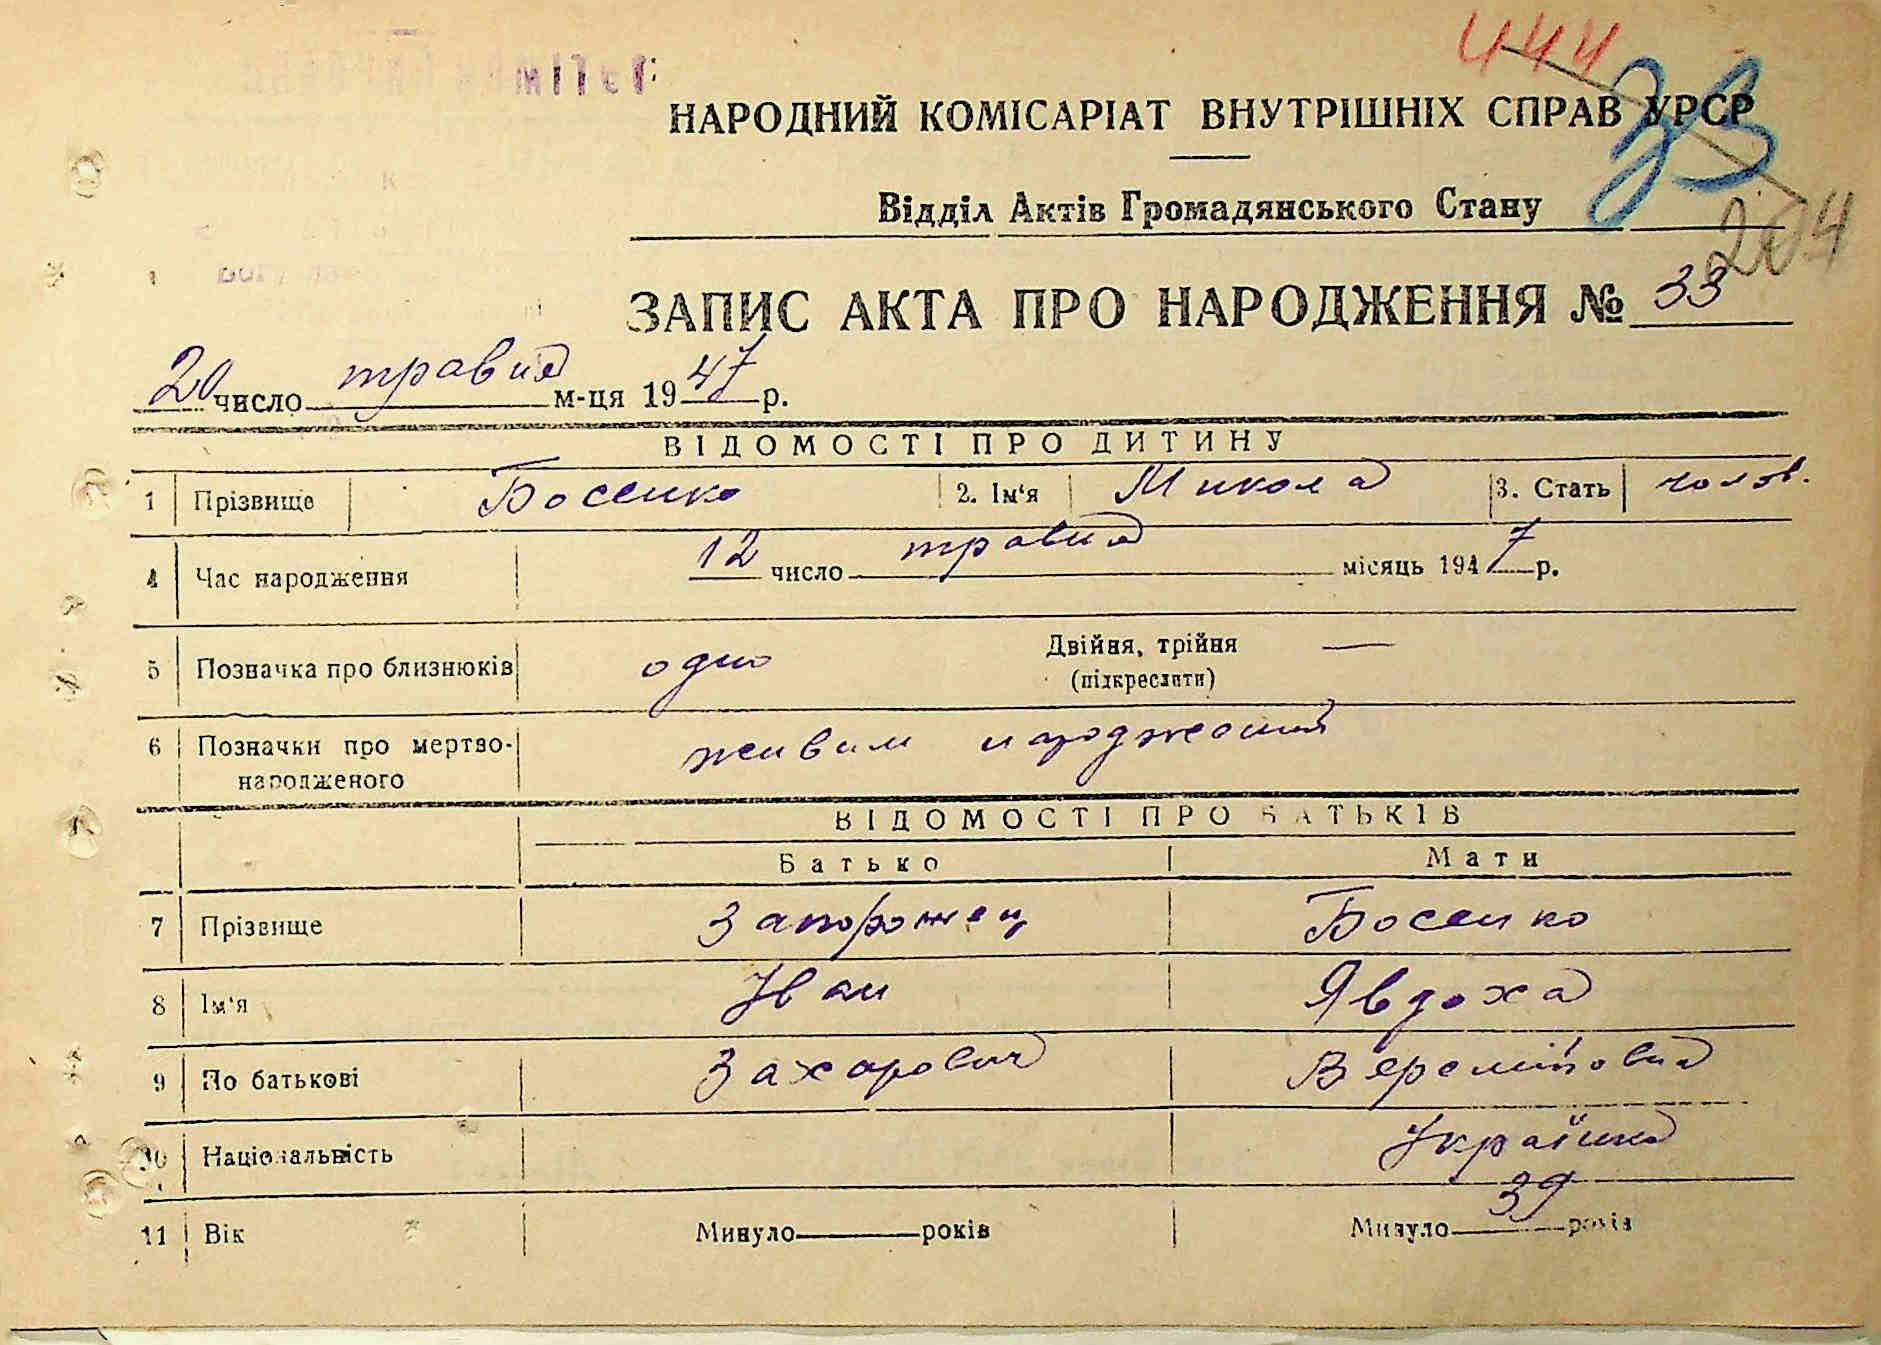 444
33
НАРОДНИЙ КОМІСАРІАТ ВНУТРІШНІХ СПРАВ УРСР
Відділ Актів Громадянського Стану
204
ЗАПИС АКТА ПРО НАРОДЖЕННЯ № 33
20 число травня м-ця 1947 р.
ВІДОМОСТІ ПРО ДИТИНУ
1 Прізвище Босенко 2. Ім'я Микола 3. Стать чолов.
4 Час народження 12 число травня місяць 1947 р.
5 Позначка про близнюків одно Двійня, трійня —
(підкреслити)
6 Позначки про мертво- живим народжений
народженого
ВІДОМОСТІ ПРО БАТЬКІВ
Батько Мати
7 Прізвище Запорожец Босенко
8 Ім'я Іван Явдоха
9 По батькові Захарович Веремієвна
10 Національність Українка
11 Вік Минуло років Минуло 39 років